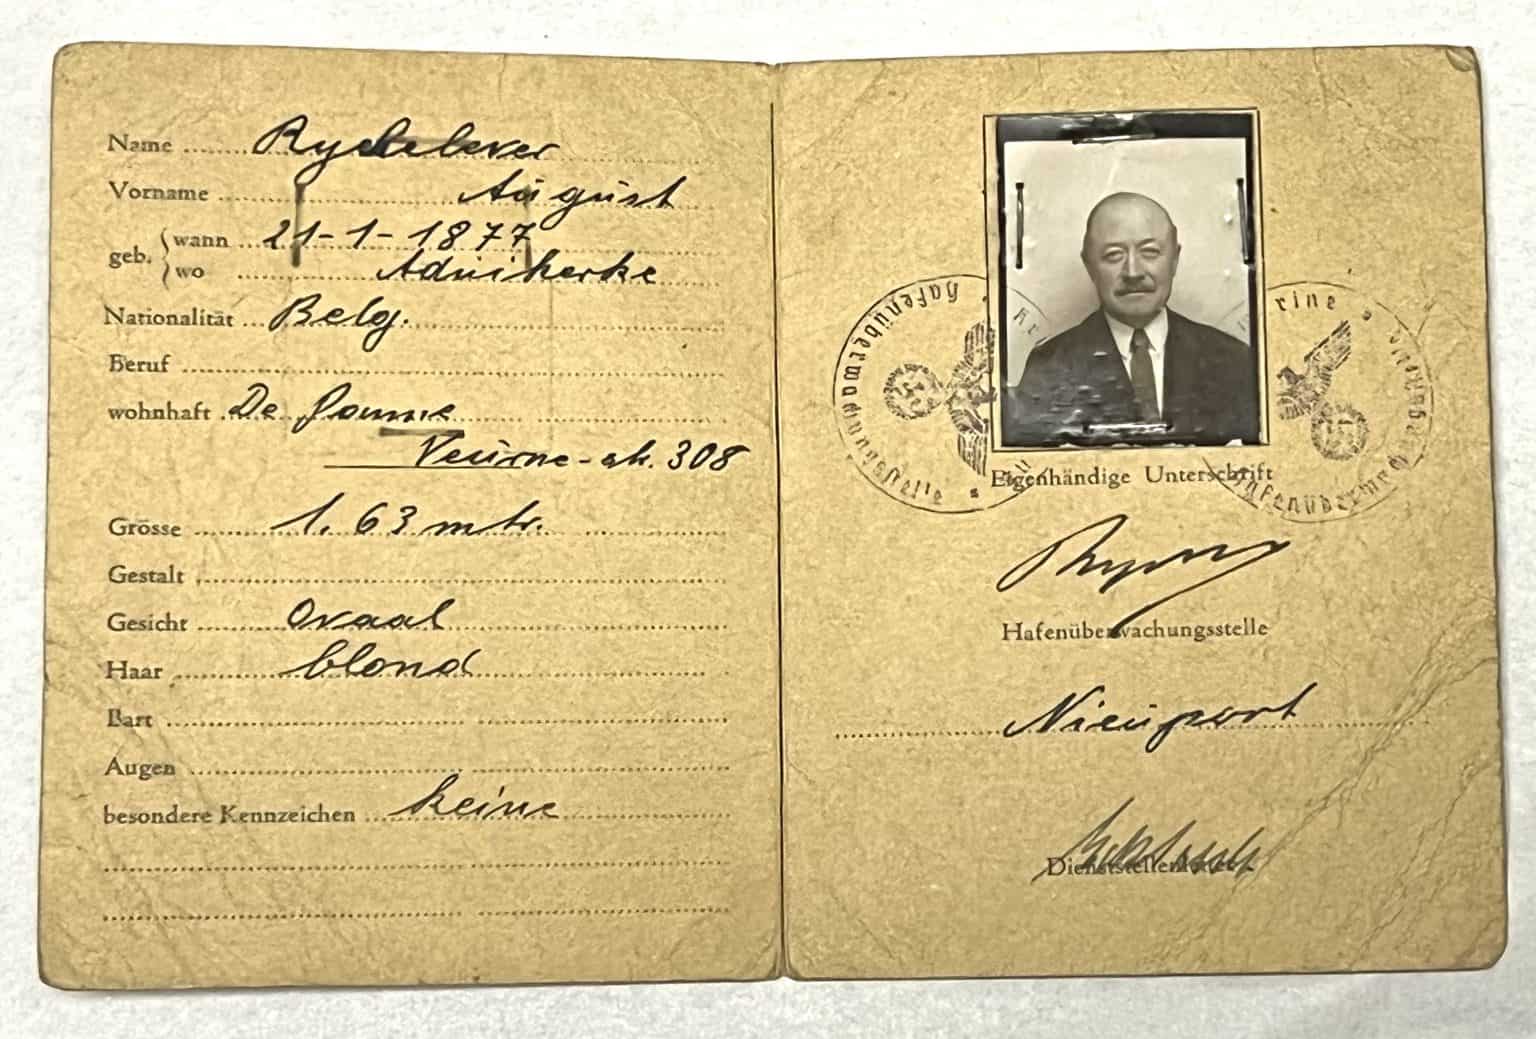 Name Rydelever
Vorname August
geb. wann 21-1-1877
wo Aduikerke
Nationalität Belg.
Beruf
wohnhaft De Panne
Veurne-ak. 308
Grösse 1.63 mtr.
Gestalt
Gesicht Ovaal
Haar blond
Bart
Augen
besondere Kennzeichen keine
Hafenüberwachungsstelle
rine
Eigenhändige Unterschrift
Hafenüberwachungsstelle
Nieuport